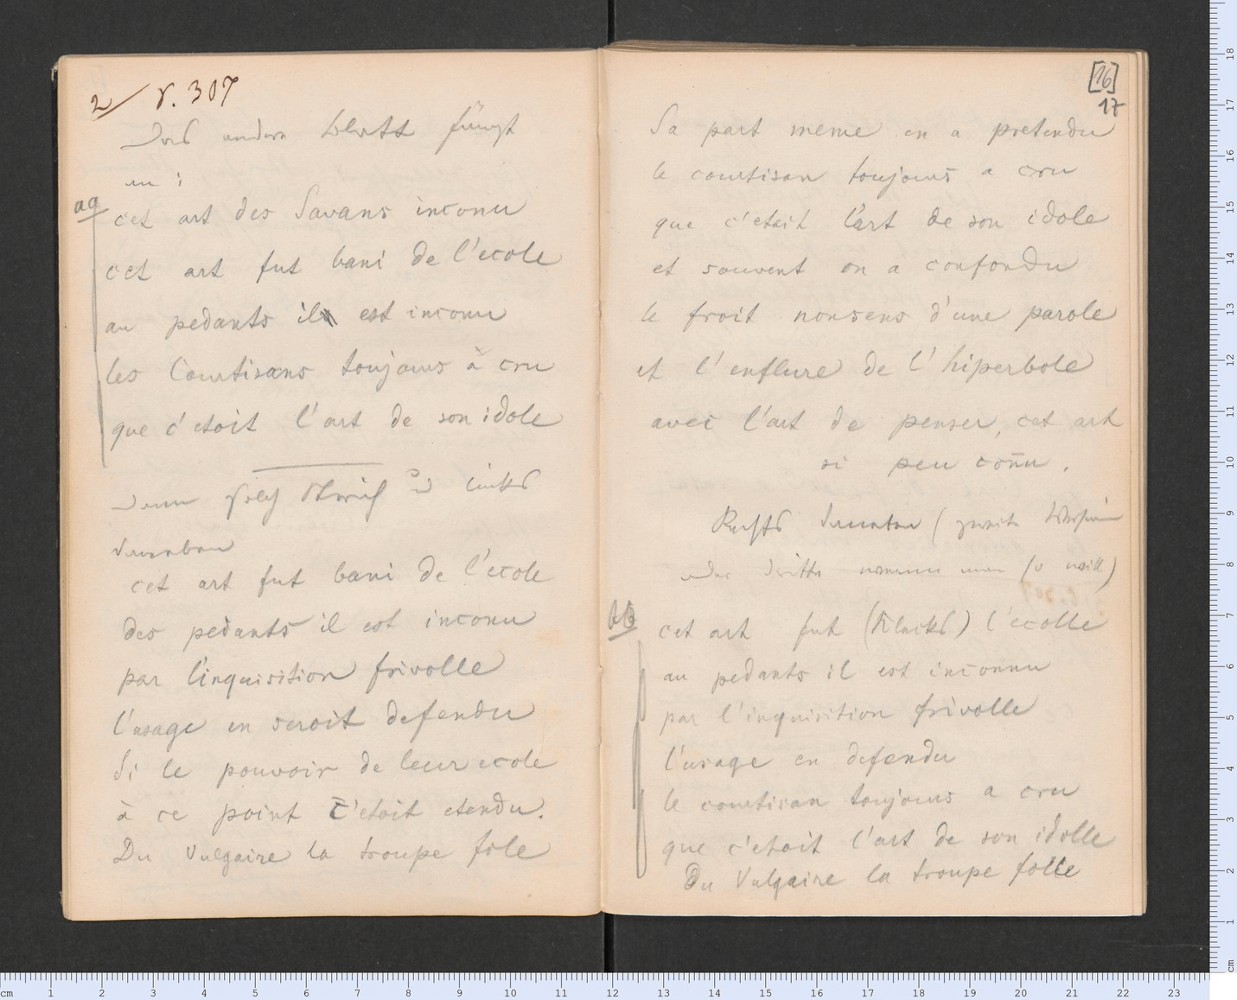 2/ V. 307
Das andere Blatt fängt
an:
aa
cet art des Savans inconu
cet art fut bani de l'ecole
au pedants il est inconu
les Courtisans toujours à cru
que c'etoit l'art de son idole
Dann
daneben
cet art fut bani de l'ecole
des pedants il est inconu
par l'inquisition frivolle
l'usage en seroit defendu
Si le pouvoir de leur ecole
à ce point c'etoit etendu.
Du Vulgaire la troupe fole
[16]
17
Sa part meme en a pretendu
le courtisan toujours a cru
que c'etait l'art de son idole
et souvent on a confondu
le froit nonsens d'une parole
et l'enflure de l'hiperbole
avec l'art de penser, cet art
si peu conu.
Rechts daneben (zweite
oder dritte
bb
cet art fut l'ecolle
au pedants il est inconnu
par l'inquisition frivolle
l'usage en defendu
le courtisan toujours a cru
que c'etoit l'art de son idolle
Du Vulgaire la troupe folle